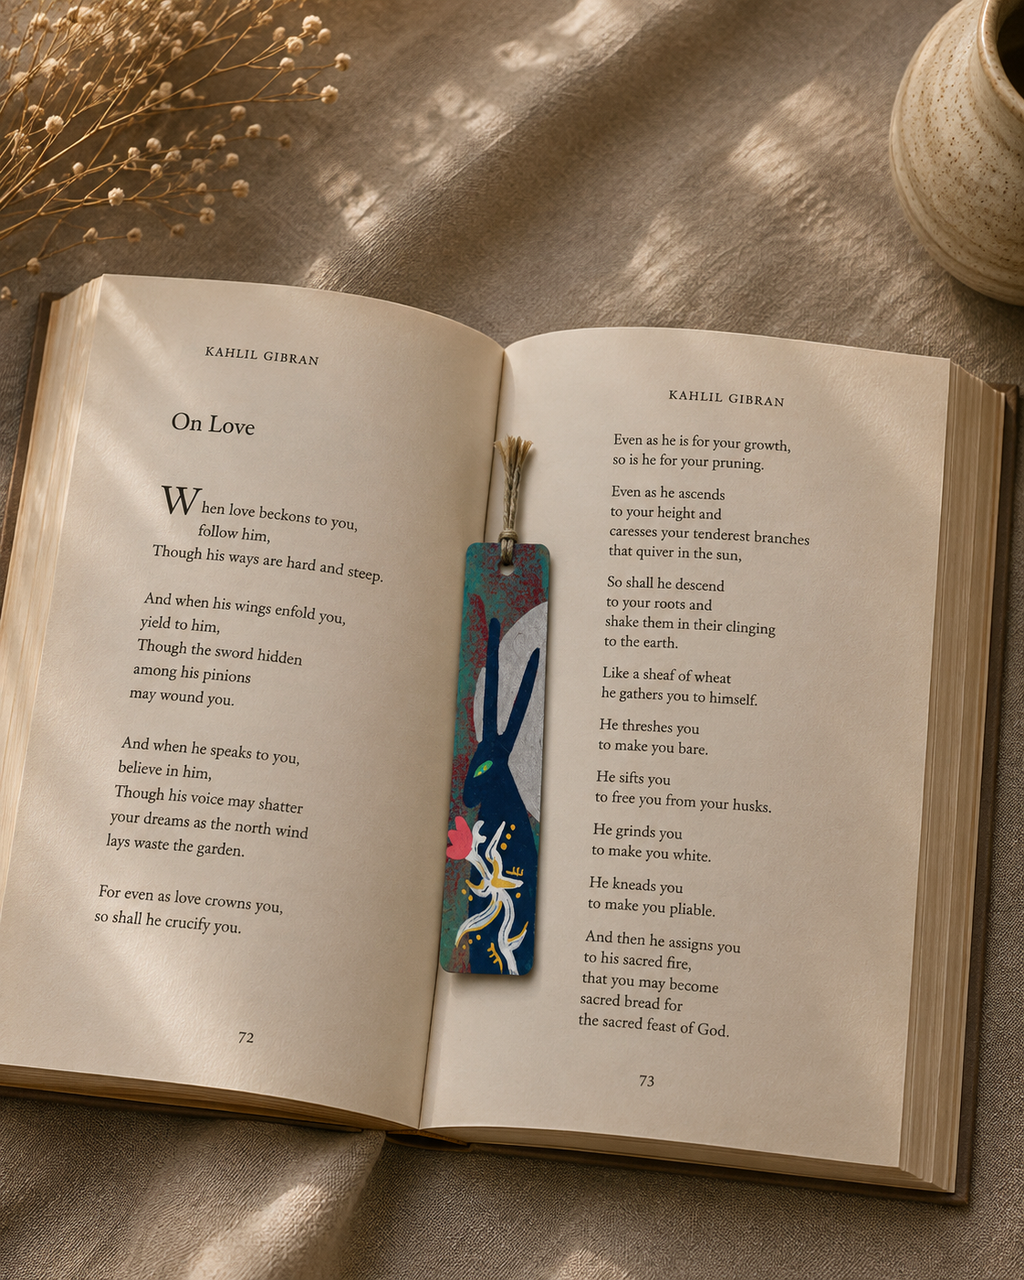 KAHLIL GIBRAN
On Love
When love beckons to you,
follow him,
Though his ways are hard and steep.
And when his wings enfold you,
yield to him,
Though the sword hidden
among his pinions
may wound you.
And when he speaks to you,
believe in him,
Though his voice may shatter
your dreams as the north wind
lays waste the garden.
For even as love crowns you,
so shall he crucify you.
72
KAHLIL GIBRAN
Even as he is for your growth,
so is he for your pruning.
Even as he ascends
to your height and
caresses your tenderest branches
that quiver in the sun,
So shall he descend
to your roots and
shake them in their clinging
to the earth.
Like a sheaf of wheat
he gathers you to himself.
He threshes you
to make you bare.
He sifts you
to free you from your husks.
He grinds you
to make you white.
He kneads you
to make you pliable.
And then he assigns you
to his sacred fire,
that you may become
sacred bread for
the sacred feast of God.
73